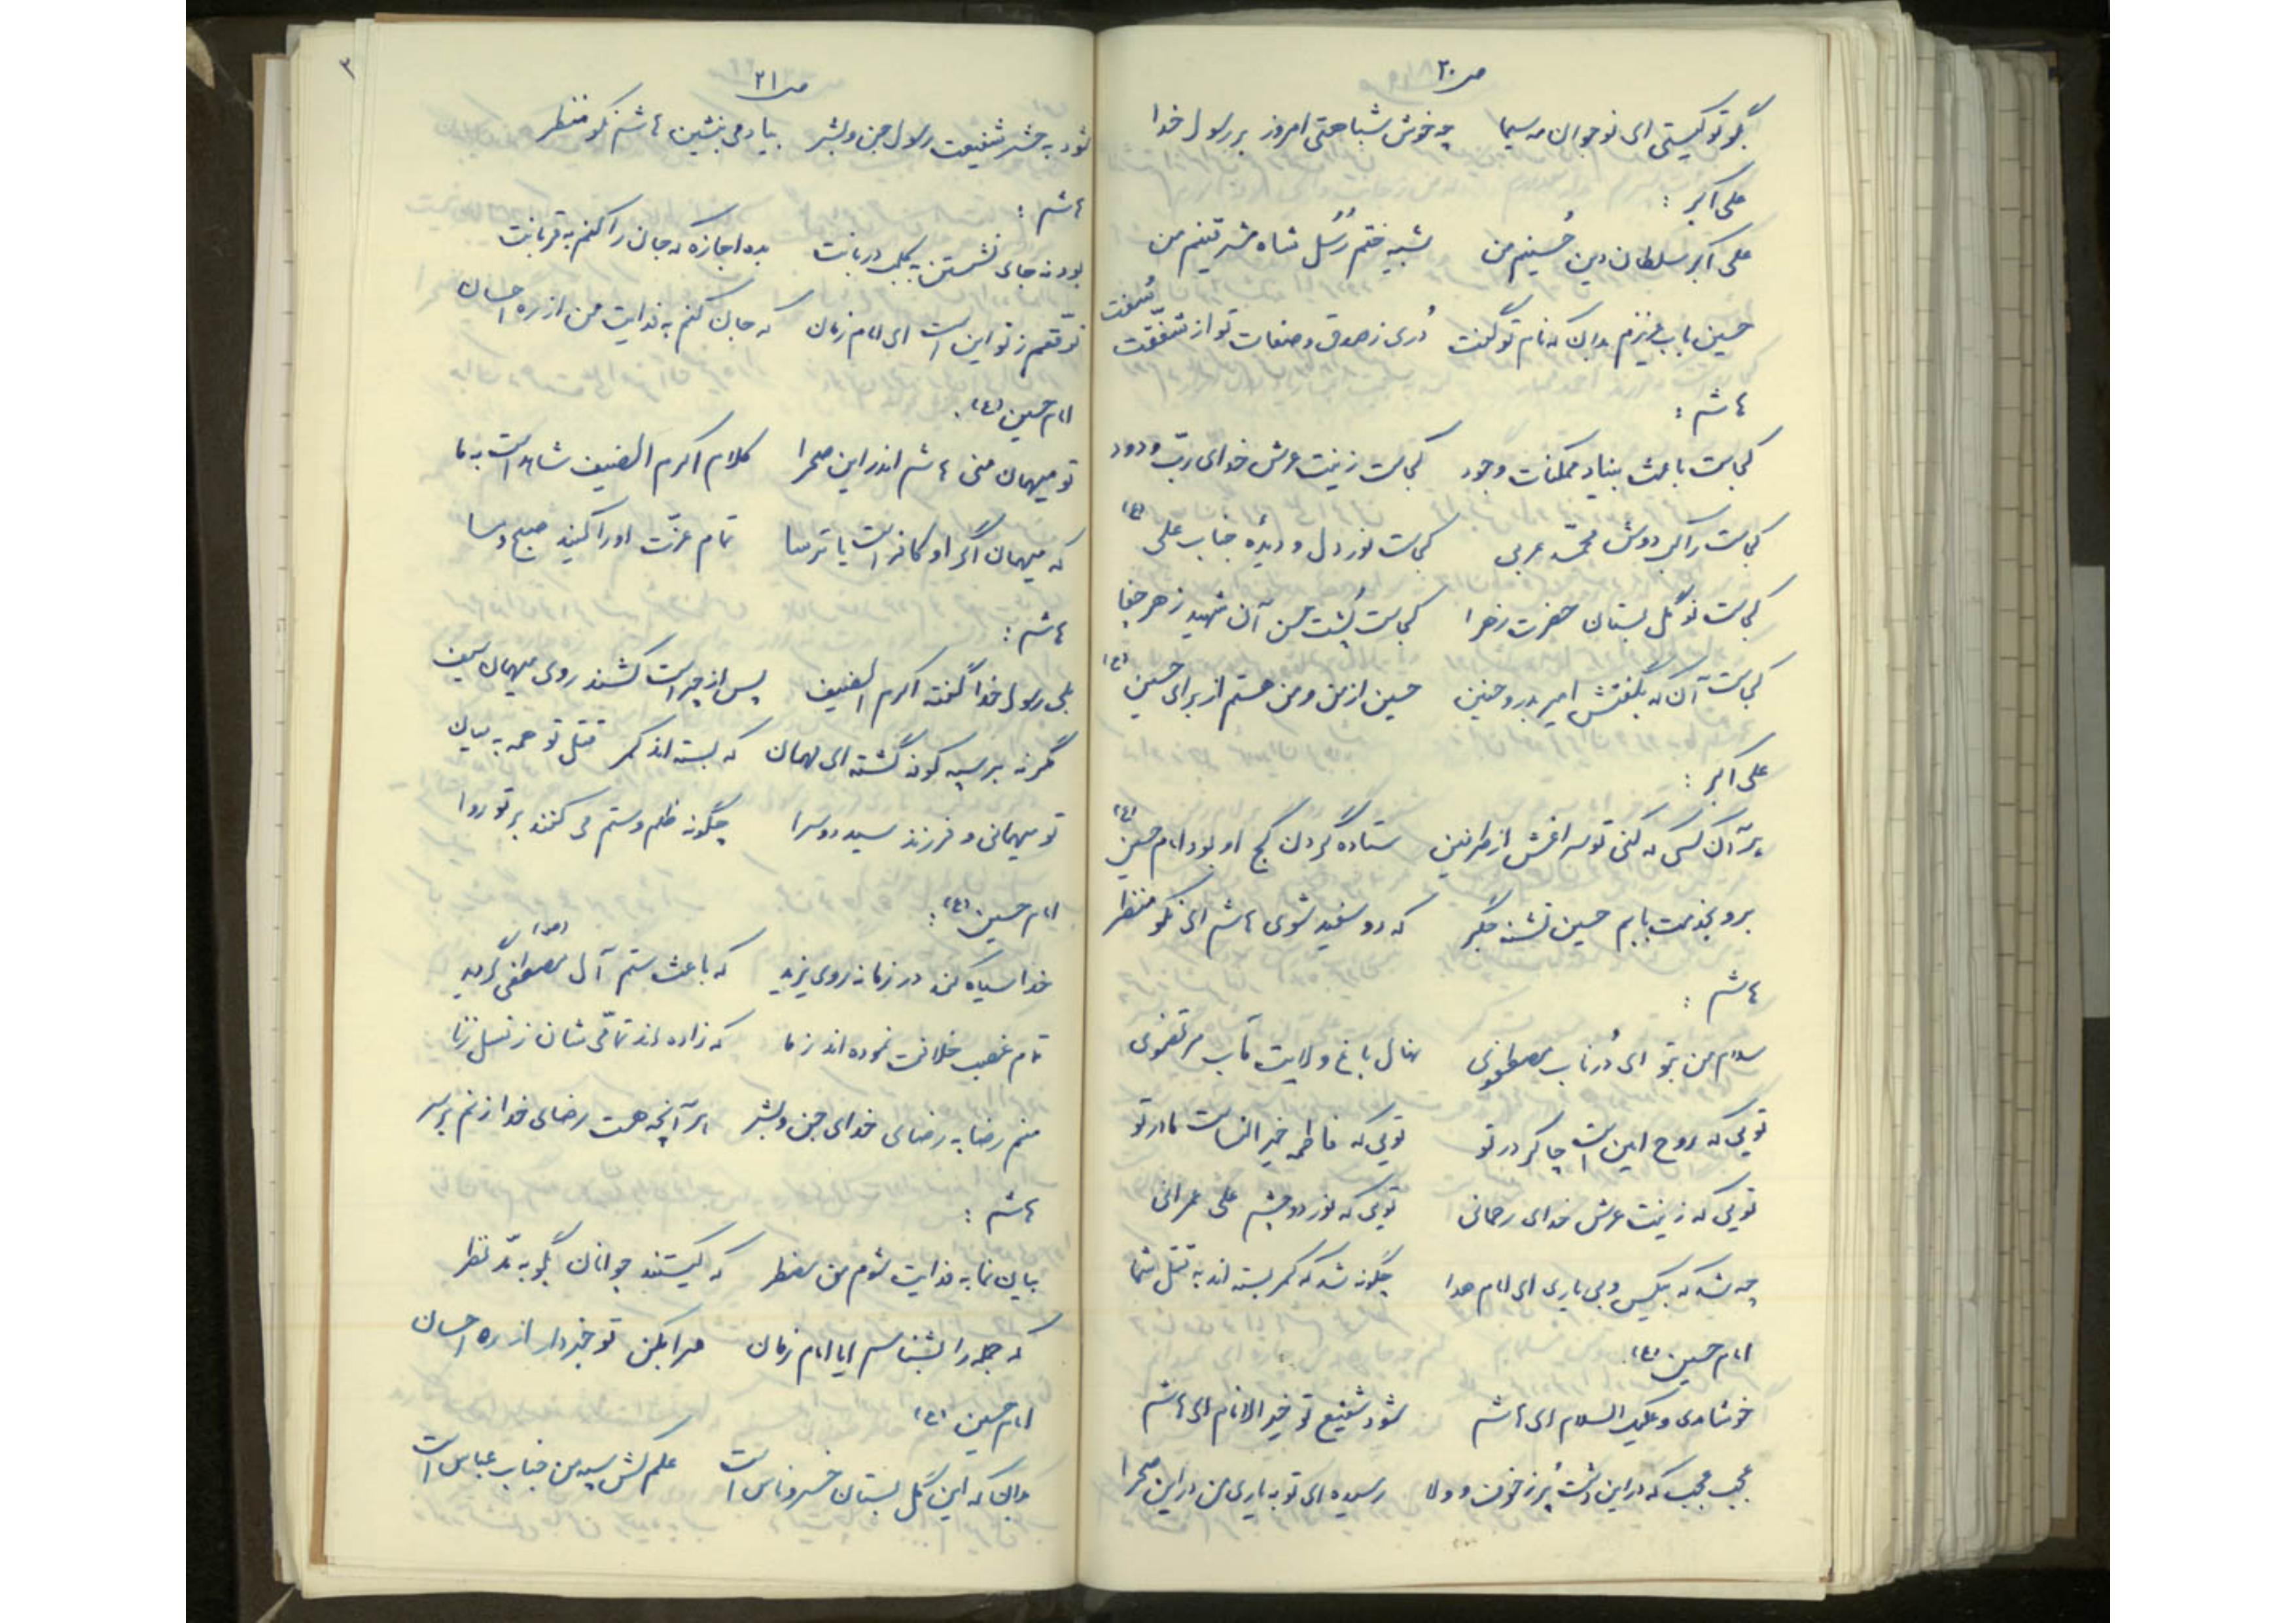 ص ۲۰
بگو تو کیستی ای نوجوان مه سیما چه خوش شباهتی امروز بر رسول خدا
علی اکبر :
علی اکبر سلطان دین حُسینم من شبیه ختم رُسُل شاه مشرقینم من
حسین باب عزیزم بدان که نام تو گفت دُری ز صدق و صفات تو از شفقّت سُفت
هاشم :
کجاست باعث بنیاد ممکنات وجود کجاست زینت عرش خدای ربّ ودود
کجاست راکب دوش محمّد عربی کجاست نور دل و دیدهٔ جناب علی (ع)
کجاست نوگل بستان حضرت زهرا کجاست پُشت حسن آن شهید زهر جفا
کجاست آن که بگفتش امیر بدر و حنین حسین از من و من هستم از برای حسین (ع)
علی اکبر :
هر آن کسی که کنی تو سراغش از طرفین ستاده گردن کج او بود امام حسین (ع)
برو بخدمت بابم حسین تشنه جگر که رو سفید شوی هاشم ای نکو منظر
هاشم :
سلام من بتو ای دُر ناب مصطفوی نهال باغ ولایت مآب مرتضوی
تویی که روح امین است چاکر در تو تویی که فاطمه خیر النساست مادر تو
تویی که زینت عرش خدای رحمانی تویی که نور دو چشم علی عمرانی
چه شد که بیکس و بی یاری ای امام هدا چگونه شد که کمر بسته اند به قتل شما
امام حسین (ع)
خوش آمدی و علیک السلام ای هاشم شود شفیع تو خیر الانام ای هاشم
عجب عجب که در این دشت پُر ز خوف و ولا رسیده ای تو به یاری من در این صحرا
ص ۲۱
۳
شود به حشر شفیعت رسول جن و بشر بیا دمی بنشین هاشم نکو منظر
هاشم :
بود نه جای نشستن به کلب دربانت بده اجازه که جان را کنم به قربانت
توّقعم ز تو این است ای امام زمان که جان کنم به فدایت من از ره احسان
امام حسین (ع) .
تو میهمان منی هاشم اندر این صحرا کلام اکرم الضیف شاهد است به ما
که میهمان اگر او کافر است یا ترسا تمام عزّت او را کنید صبح و مسا
هاشم :
بلی رسول خدا گفته اکرم الضیف پس از چه است کشند روی میهمان سیف
مگر نه بر سپه کوفه گشته ای مهمان که بسته اند کمر قتل تو همه به میان
تو میهمانی و فرزند سید دوسرا چگونه ظلم و ستم می کنند بر تو روا
امام حسین (ع) :
خدا سیاه کند در زمانه روی یزید که باعث ستم آل مصطفی (ص) گردید
تمام غصب خلافت نموده اند ز ما که زاده اند تمامّی شان ز نسل زنا
منم رضا به رضای خدای جن و بشر هر آنچه هست رضای خدا زنم بر سر
هاشم :
بیان نما به فدایت شوم من مضطر که کیستند جوانان بگو به مدّ نظر
که جمله را بشناسم ایا امام زمان مرا بکن تو خبردار از ره احسان
امام حسین (ع)
بدان که این گل بستان خسرو ناس است علم کش سپه من جناب عباس است